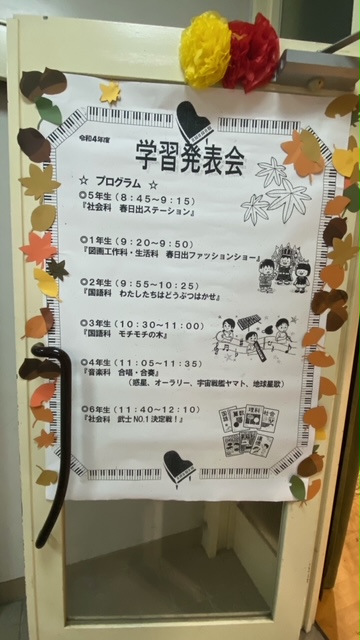 令和4年度
学習発表会
☆ プログラム ☆
◎5年生(8:45~9:15)
『社会科 春日出ステーション』
◎1年生(9:20~9:50)
『図画工作科・生活科 春日出ファッションショー』
◎2年生(9:55~10:25)
『国語科 わたしたちはどうぶつはかせ』
◎3年生(10:30~11:00)
『国語科 モチモチの木』
◎4年生(11:05~11:35)
『音楽科 合唱・合奏』
(惑星、オーラリー、宇宙戦艦ヤマト、地球星歌)
◎6年生(11:40~12:10)
『社会科 武士NO.1決定戦!』